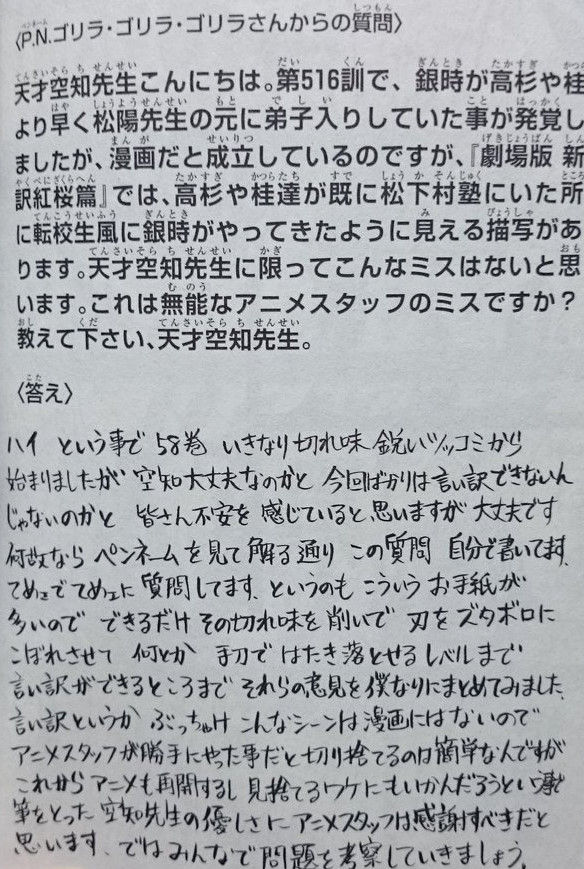 〈P.N.ゴリラ・ゴリラ・ゴリラさんからの質問〉
天才空知先生こんにちは。第516訓で、銀時が高杉や桂
より早く松陽先生の元に弟子入りしていた事が発覚し
ましたが、漫画だと成立しているのですが、『劇場版 新
訳紅桜篇』では、高杉や桂達が既に松下村塾にいた所
に転校生風に銀時がやってきたように見える描写があ
ります。天才空知先生に限ってこんなミスはないと思
います。これは無能なアニメスタッフのミスですか?
教えて下さい、天才空知先生。
〈答え〉
ハイ という事で 58巻 いきなり切れ味 鋭いツッコミから
始まりましたが 空知大丈夫なのかと 今回ばかりは言い訳できないん
じゃないのかと 皆さん不安を 感じていると思いますが 大丈夫です
何故なら ペンネームを見て 解る通り この質問 自分で書いてます。
てめェでてめェに 質問してます、というのも こういう お手紙が
多いので できるだけ その切れ味を 削いで 刃を ズタボロに
こぼれさせて 何とか 手刀で はたき落とせる レベルまで
言い訳ができるところまで それらの意見を 僕なりにまとめてみました、
言い訳というか ぶっちゃけ こんなシーンは 漫画にはないので
アニメスタッフが勝手にやった事だと 切り捨てるのは 簡単なんですが
これから アニメも 再開するし 見捨てるワケにもいかんだろうという事で
筆をとった 空知先生の 優しさに アニメスタッフは 感謝すべきだと
思います、ではみんなで 問題を 考察していきましょう。